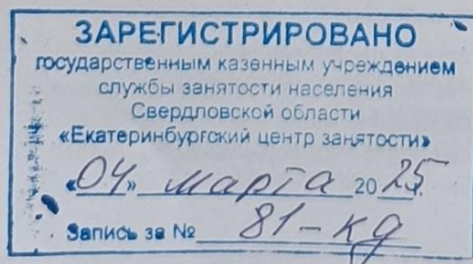 ЗАРЕГИСТРИРОВАНО
государственным казенным учреждением
службы занятости населения
Свердловской области
«Екатеринбургский центр занятости»
«04» марта 2025г.
Запись за № 81-кд